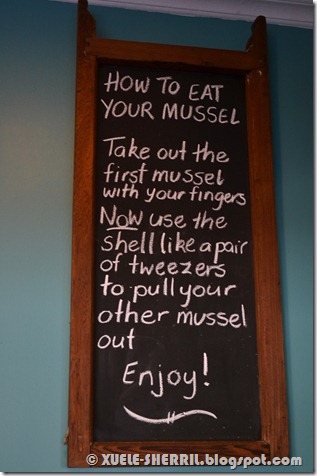 HOW TO EAT
YOUR MUSSEL
Take out the
first mussel
with your fingers
NOW use the
shell like a pair
of tweezers
to pull your
other mussel
out
Enjoy!
© XUELE-SHERRIL.blogspot.com